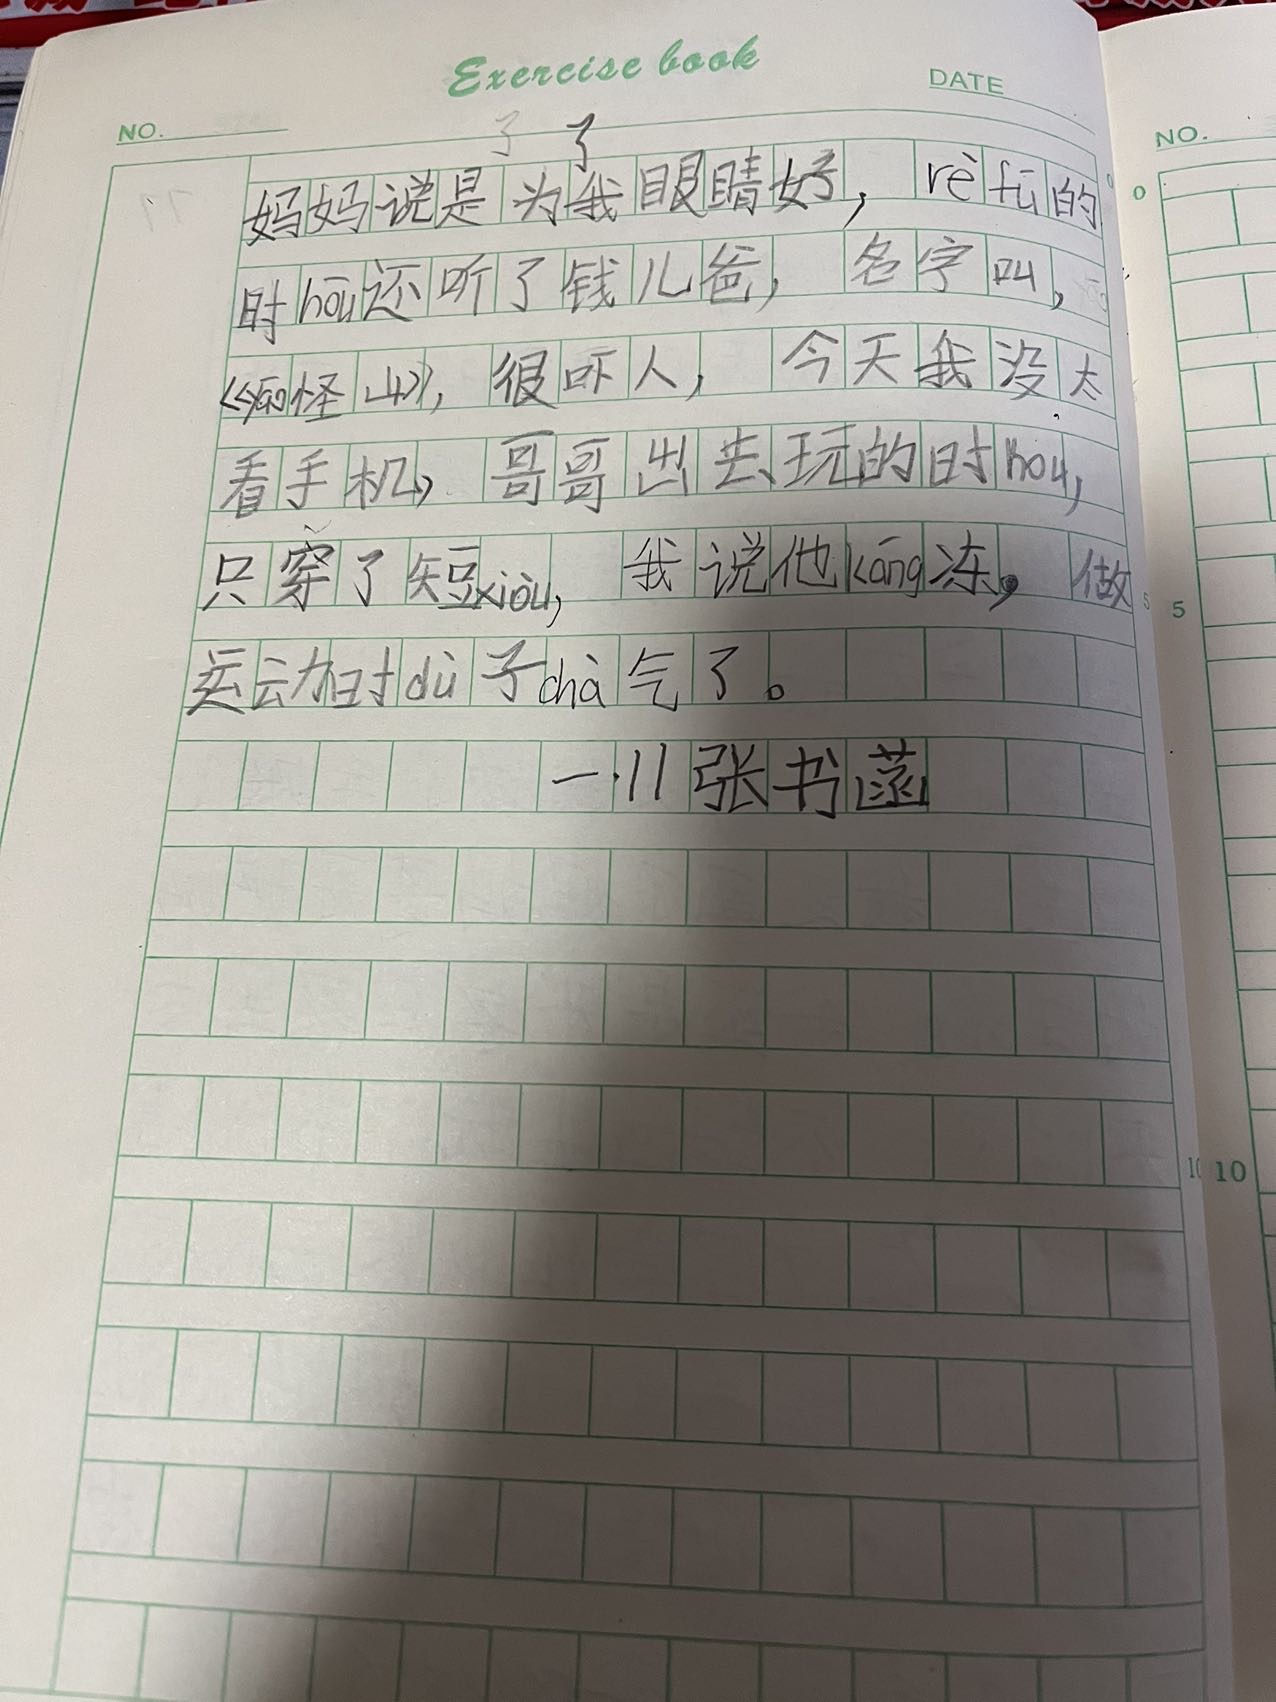 Exercise book
DATE
NO.
NO.
了 了
妈妈说是为我眼睛好，rè fū的
时hōu还听了钱儿爸，名字叫，
《yāo怪山》，很吓人，今天我没太
看手机，哥哥出去玩的时hou，
只穿了短xiòu，我说他kāng冻，做
运动时dù子chà气了。
一·11张书菡
0
5
5
10
10